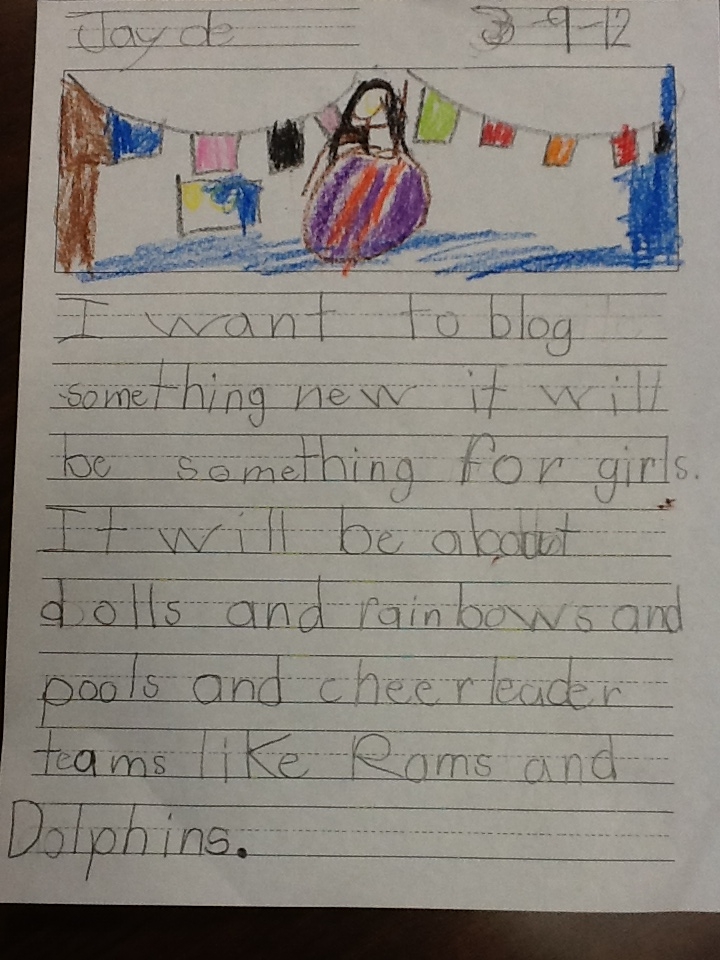 Jayde 3-9-12
I want to blog
something new it will
be something for girls.
It will be about
dolls and rainbows and
pools and cheerleader
teams like Rams and
Dolphins.